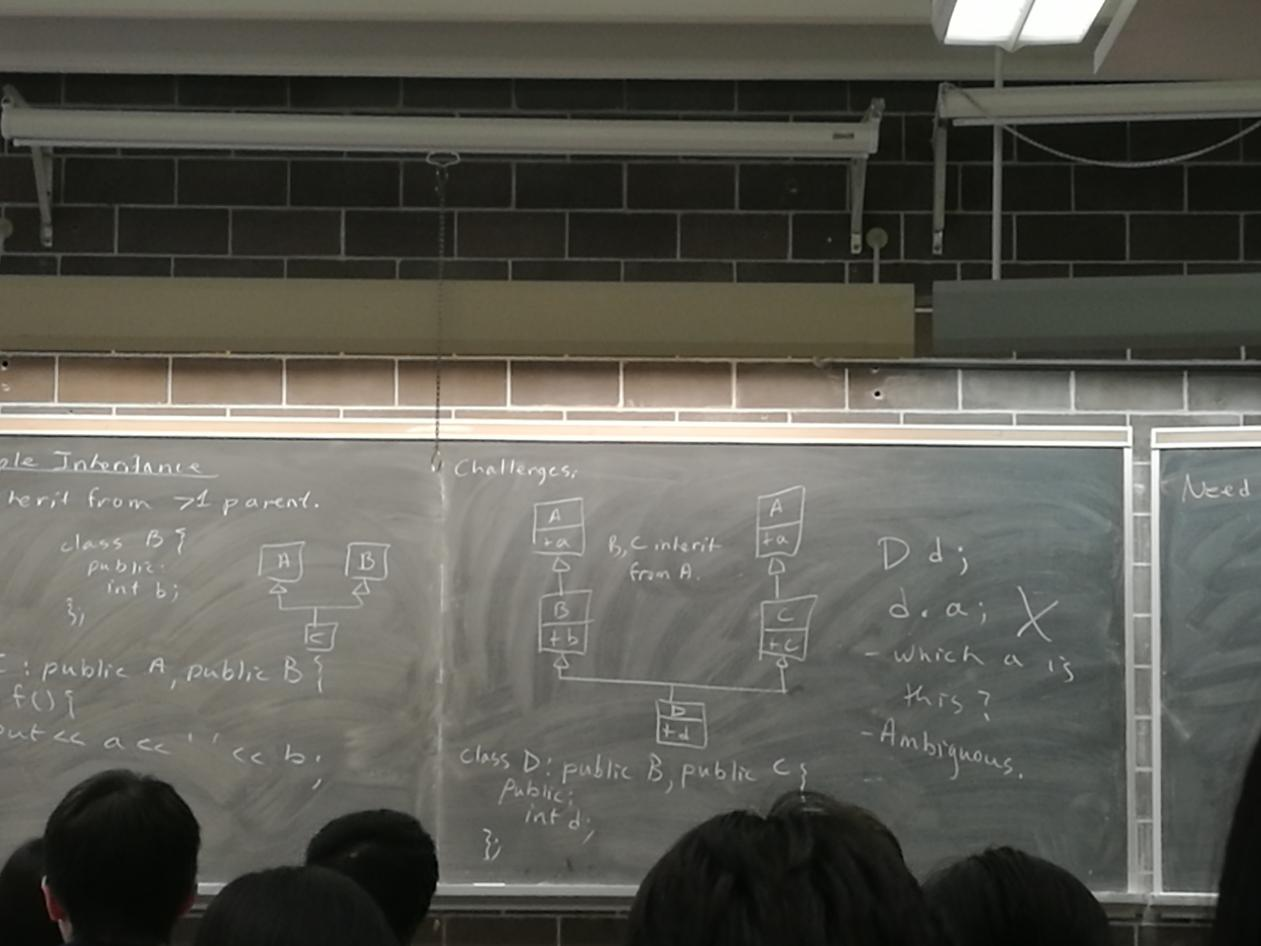 ple Inheritance
herit from >1 parent.
class B {
public:
int b;
};
A
B
C
C : public A, public B {
f() {
out << a << ' ' << b;
Challenges:
A
+a
B, C inherit
from A.
A
+a
B
+b
C
+c
D
+d
class D: public B, public C {
public:
int d;
};
D d;
d.a; X
- which a is
this?
- Ambiguous.
Need